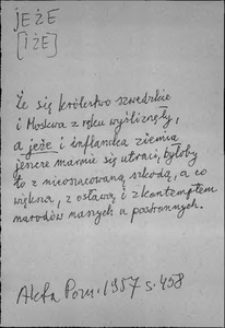 JEŻE
[IŻE]
Że się królestwo szwedzkie
i Moskwa z ręku wyśliznęły,
a jeże i inflandca ziemia
jeszcze marnie się utraci, byłoby
to z nieoszacowaną szkodą, a co
większa, z osławą i z kontemptem
narodów naszych u postronnych.
Akta Pozn. 1957 s. 458